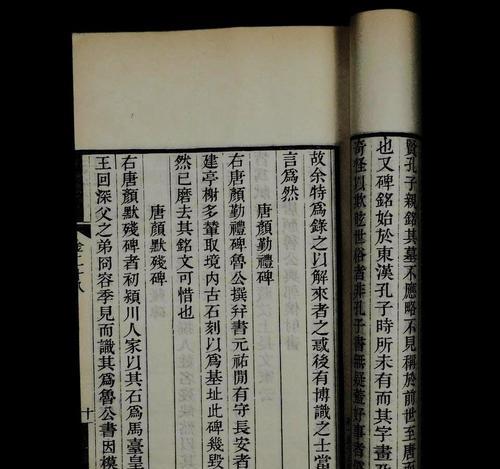 賢孔子親銘其墓不應略不見稱於前世至唐
也又碑銘始於東漢孔子時所未有而其字畫
奇怪以欺眩世俗者非孔子書無疑蓋好事者
故余特爲錄之以解來者之惑後有博識之士當
言爲然
唐顏勤禮碑
右唐顏勤禮碑魯公撰幷書元祐閒有守長安者
建亭榭多輦取境內古石刻以爲基址此碑幾毀
然已磨去其銘文可惜也
唐顏默殘碑
右唐顏默殘碑者初潁川人家以其石爲馬臺皇
王回深父之弟冏容季見而識其爲魯公書因模
卷二十八
十